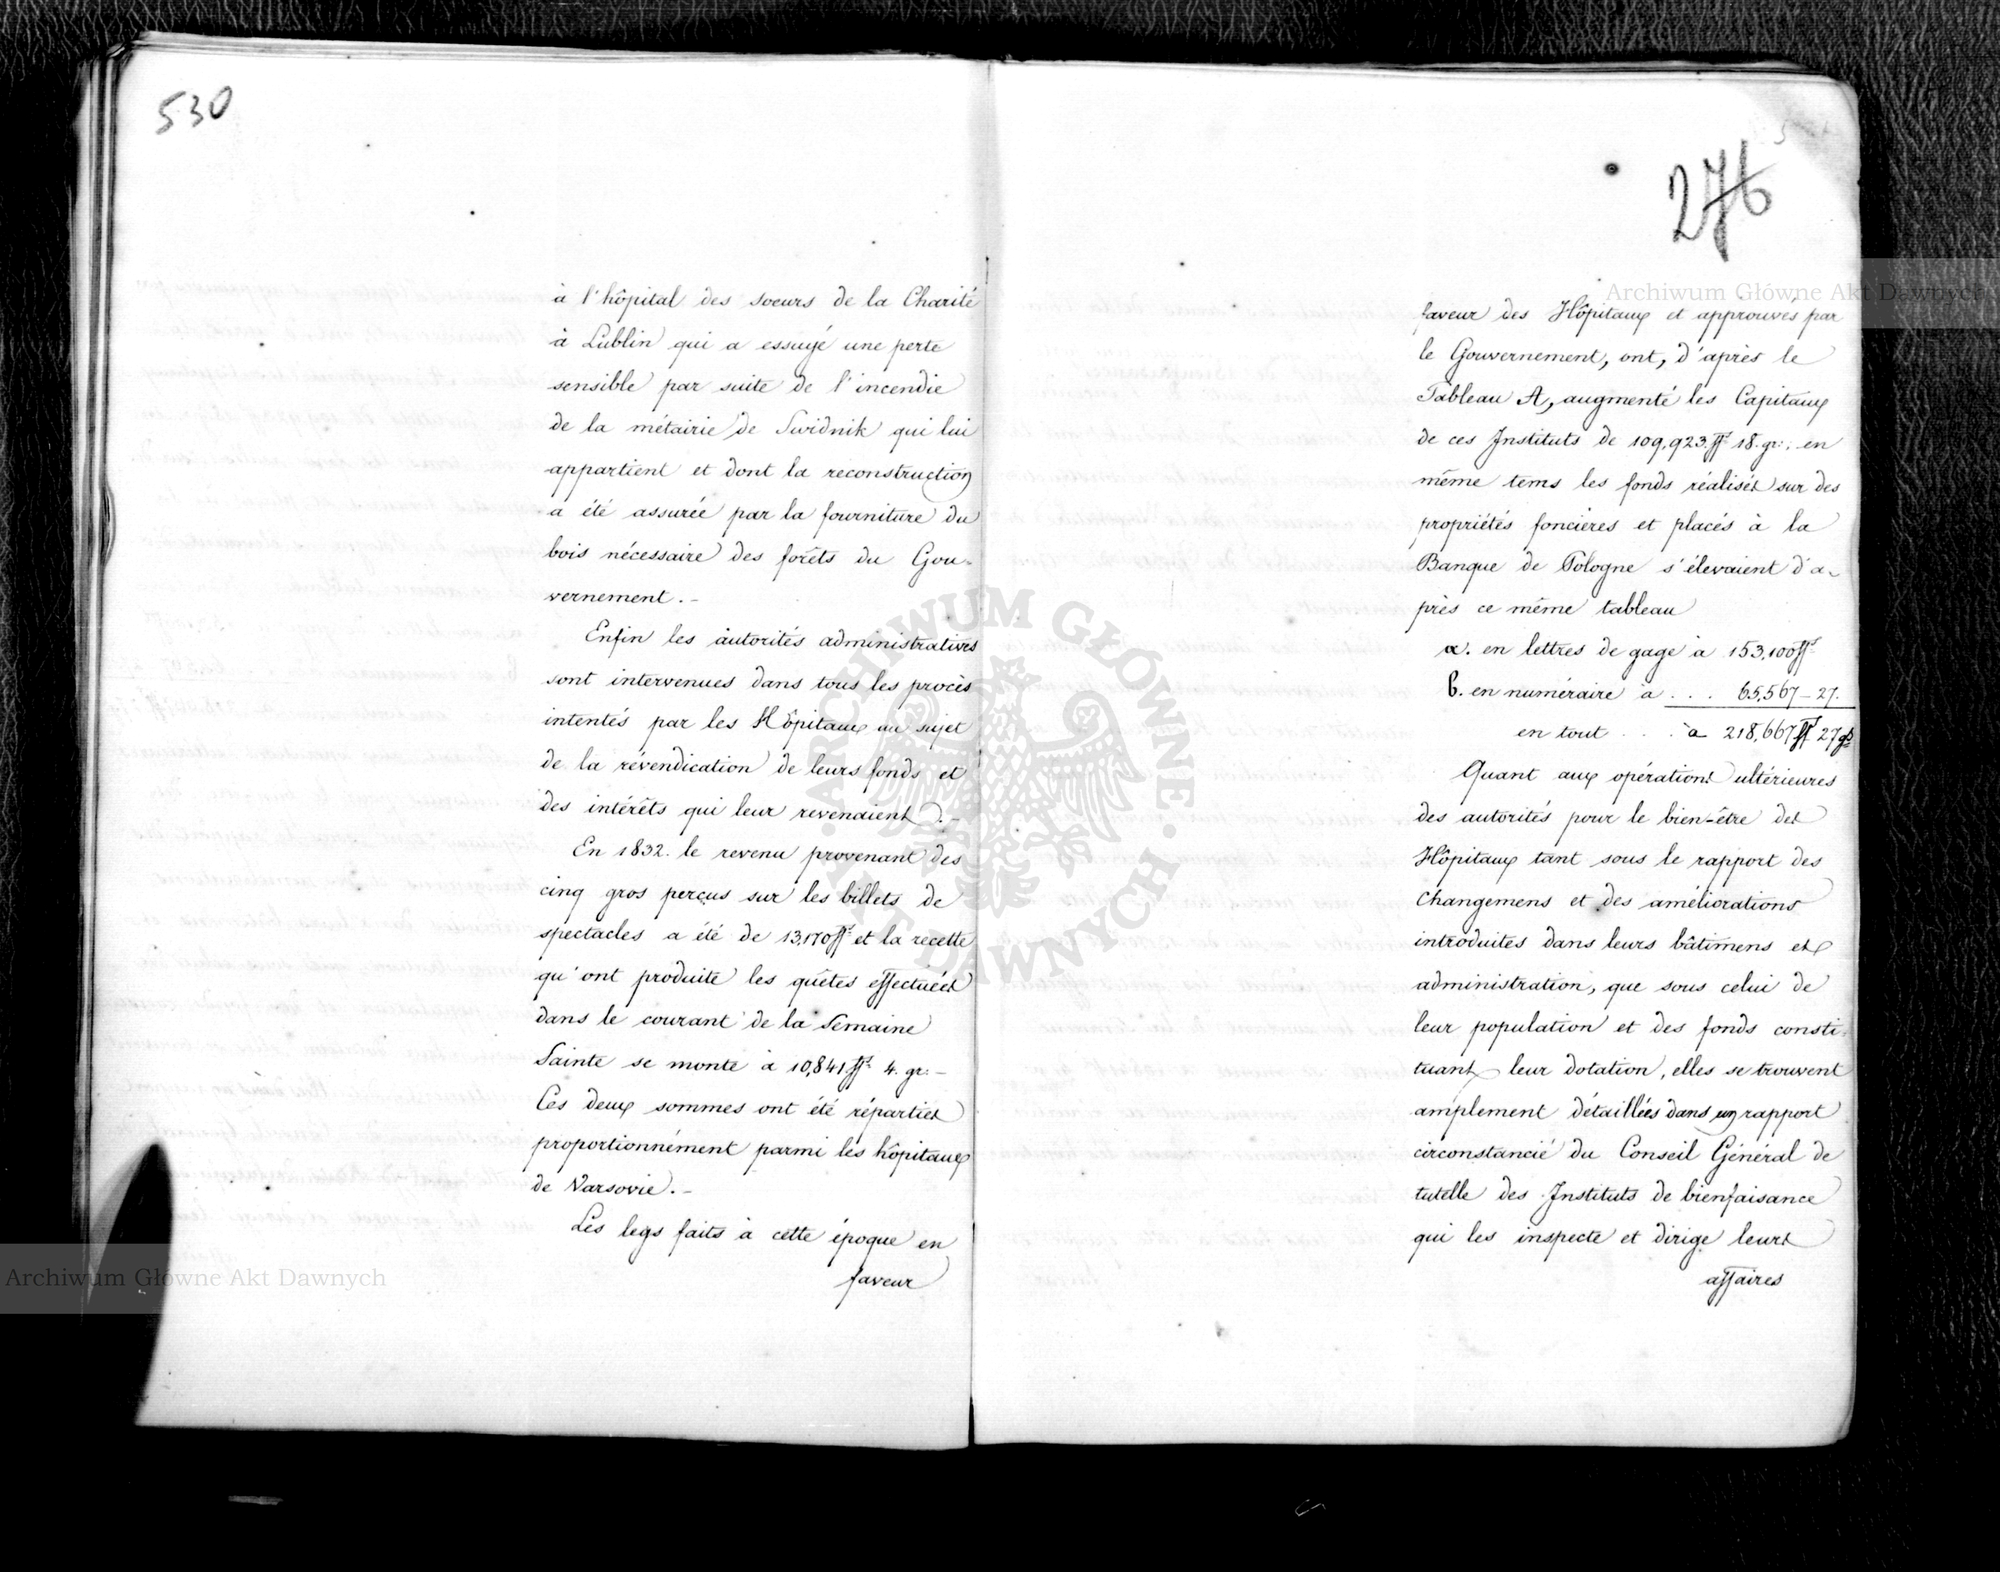 530
à l'hôpital des soeurs de la Charité
à Lublin qui a essuyé une perte
sensible par suite de l'incendie
de la métairie de Swidnik qui lui
appartient et dont la reconstruction
a été assurée par la fourniture du
bois nécessaire des forêts du Gou-
vernement. -
Enfin les autorités administratives
sont intervenues dans tous les procès
intentés par les Hôpitaux au sujet
de la révendication de leurs fonds et
des intérêts qui leur revenaient. -
En 1832. le revenu provenant des
cinq gros perçus sur les billets de
spectacles a été de 13,170 ffs et la recette
qu'ont produite les quêtes effectuées
dans le courant de la Semaine
Sainte se monte à 10,841 ffs 4. gr: -
Ces deux sommes ont été réparties
proportionnément parmi les hôpitaux
de Varsovie. -
Les legs faits à cette époque en
faveur
276
faveur des Hôpitaux et approuvés par
le Gouvernement, ont, d'après le
Tableau A, augmenté les Capitaux
de ces Instituts de 109,923 ffs 18. gr:; en
même tems les fonds réalisés sur des
propriétés foncières et placés à la
Banque de Pologne s'élevaient d'a-
près ce même tableau
a. en lettres de gage à 153,100 ffs
b. en numéraire à . . . 65,567 - 27.
en tout . . . à 218,667 ffs 27 gr
Quant aux opérations ultérieures
des autorités pour le bien-être des
Hôpitaux tant sous le rapport des
changemens et des améliorations
introduites dans leurs bâtimens et
administration, que sous celui de
leur population et des fonds consti-
tuant leur dotation, elles se trouvent
amplement détaillées dans un rapport
circonstancié du Conseil Général de
tutelle des Instituts de bienfaisance
qui les inspecte et dirige leurs
affaires
Archiwum Główne Akt Dawnych
Archiwum Główne Akt Dawnych
ARCHIWUM GŁÓWNE · AKT DAWNYCH ·